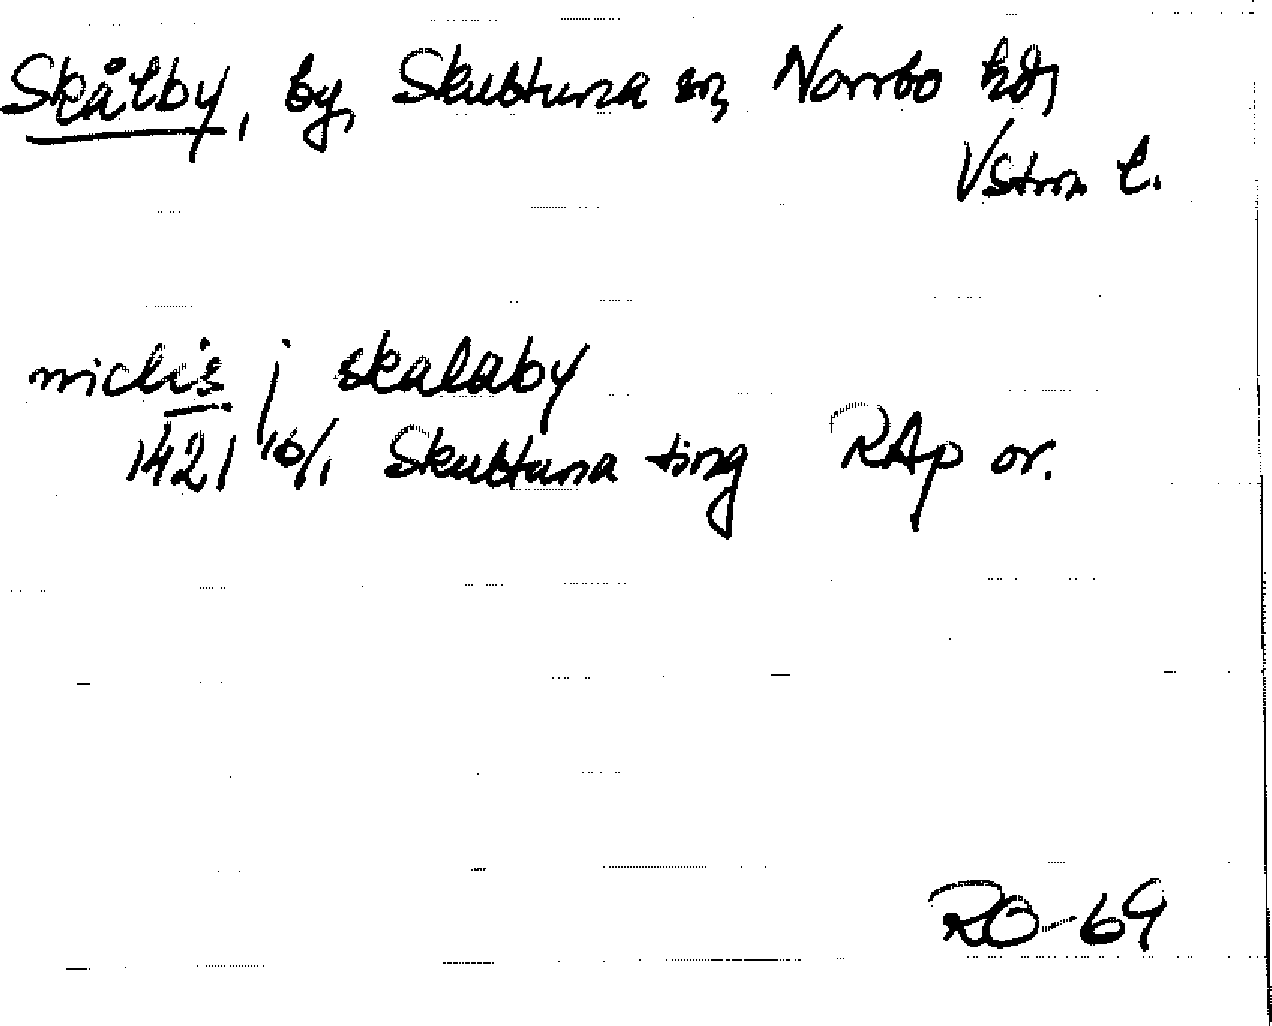 Skålby, by, Skultuna sn, Norrbo hd,
Vstm l.
niclis j skalaby
1421 16/1 Skultuna ting RAp or.
RO-69